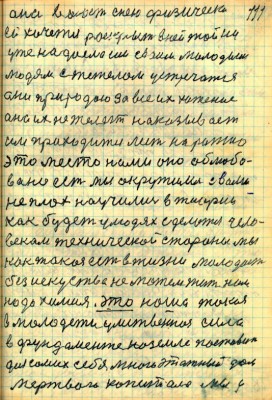 она в место снею физическа
ей хочети роскрыт вней той ни
уже надоело им своим молодым
людям с телом устречатся
они природою за все их хотение
она их не жалеет наказывает
им приходити лет на
это место нами оно облюбо
вано ест мы окрутими свами
не плох научими в теории
как будет у людях сделотся чело
векам технической стороны мы
как такоя ест в жизни молодост
без искуства не можем жит нам
надо химия. это наука такоя
в молодети умственноя сила
в фундаменте на земле поставит
для самих себя многоэтажный дом
мертвого капитала мы у